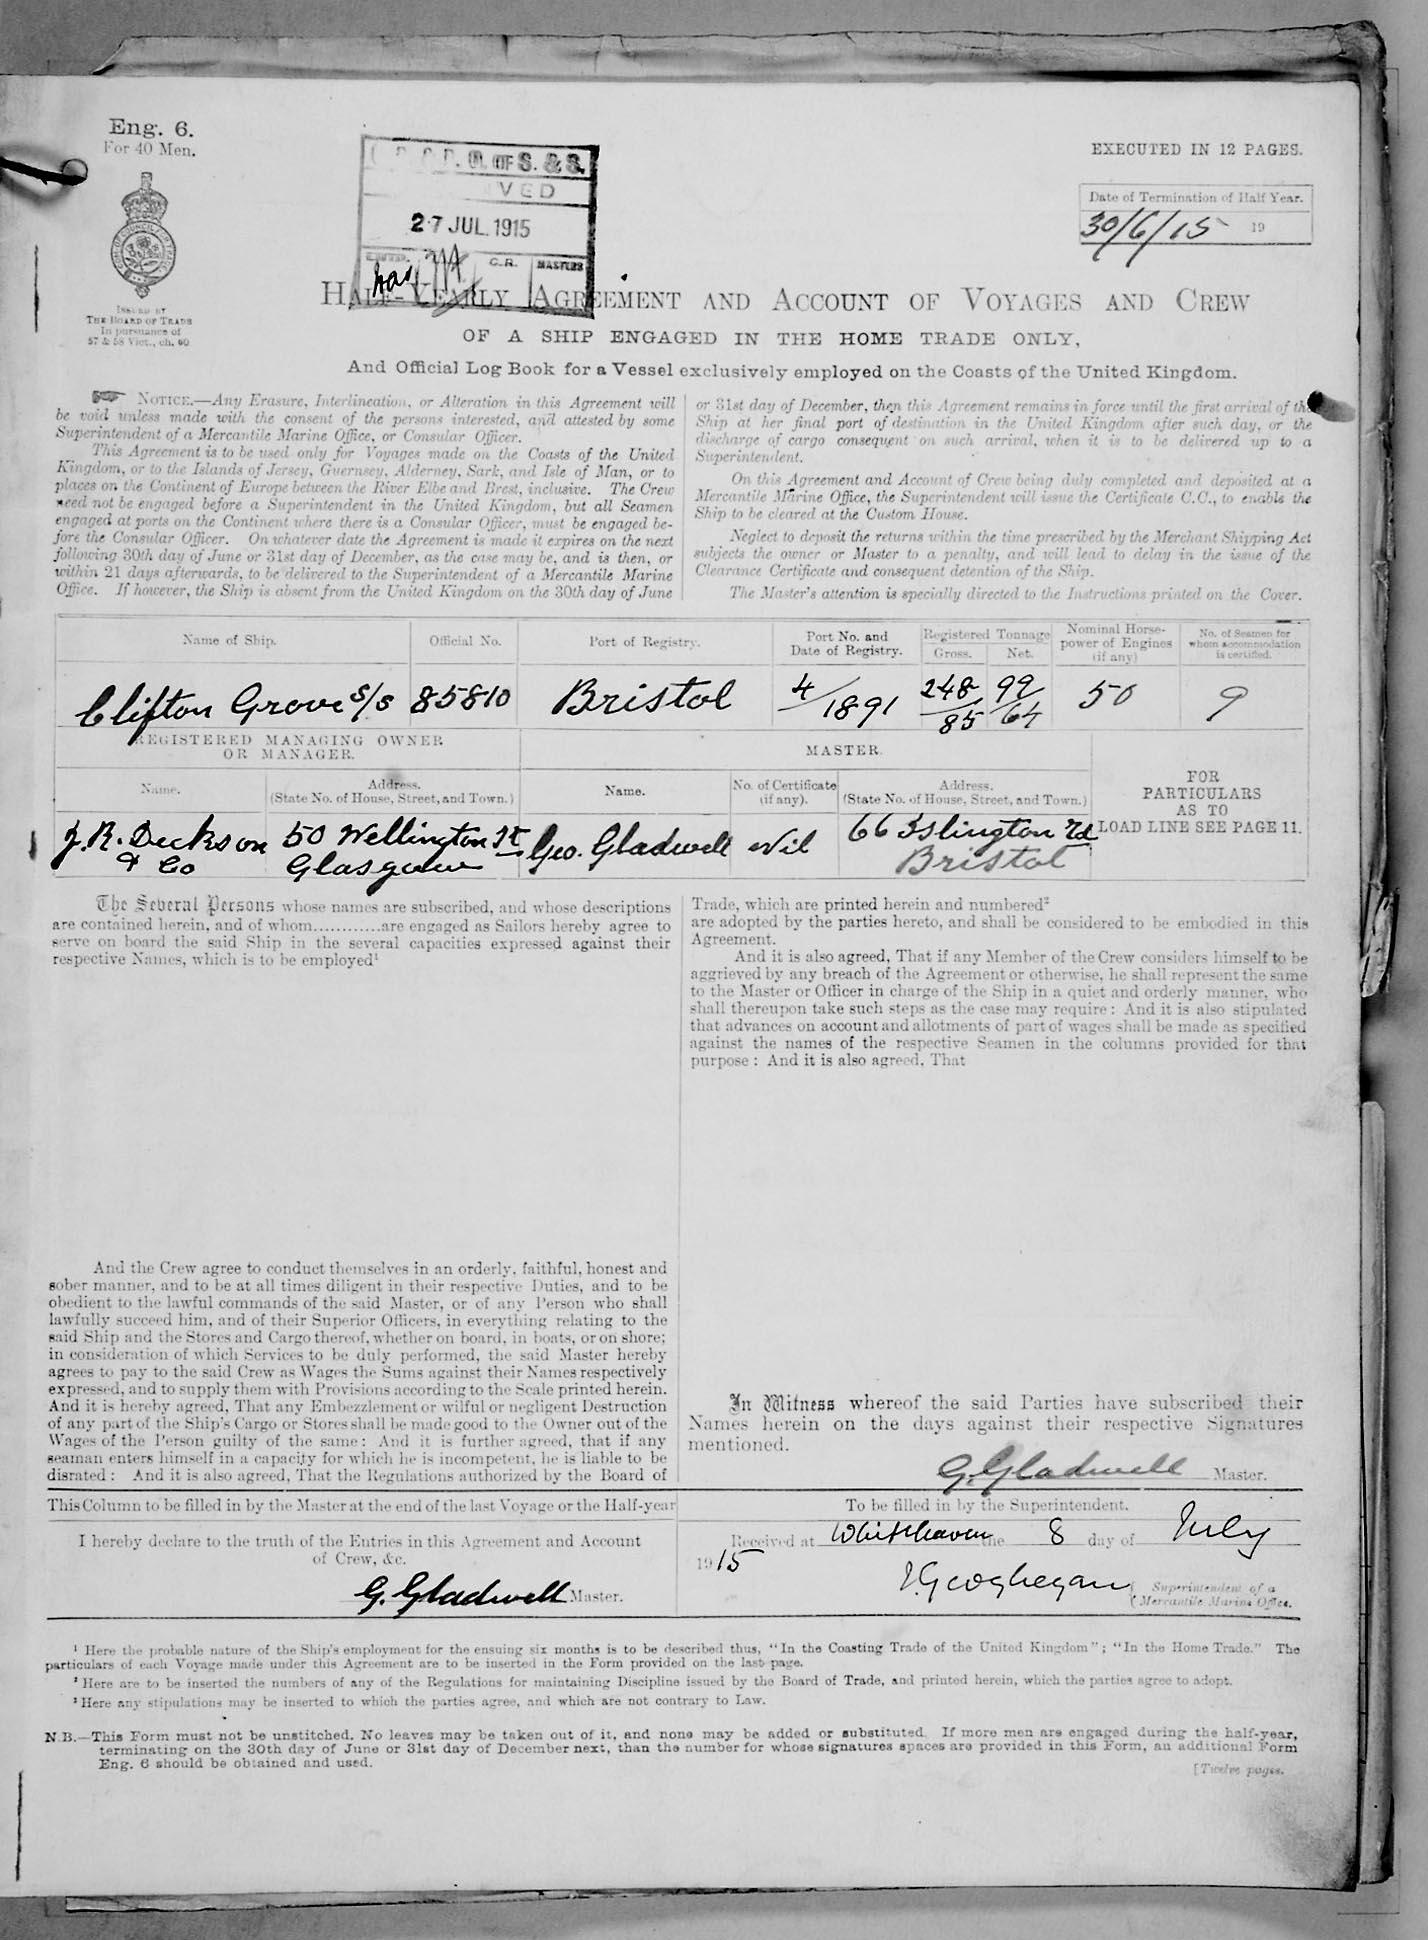 Eng. 6.
For 40 Men.
EXECUTED IN 12 PAGES.
OF S. & S.
VED
27 JUL. 1915
C.R. MASTERS
Date of Termination of Half Year.
30/6/15 19
ISSUED BY
THE BOARD OF TRADE
In pursuance of
57 & 58 Vict., ch. 60
HALF-YEARLY AGREEMENT AND ACCOUNT OF VOYAGES AND CREW
OF A SHIP ENGAGED IN THE HOME TRADE ONLY,
And Official Log Book for a Vessel exclusively employed on the Coasts of the United Kingdom.
NOTICE.—Any Erasure, Interlineation, or Alteration in this Agreement will
be void unless made with the consent of the persons interested, and attested by some
Superintendent of a Mercantile Marine Office, or Consular Officer.
This Agreement is to be used only for Voyages made on the Coasts of the United
Kingdom, or to the Islands of Jersey, Guernsey, Alderney, Sark, and Isle of Man, or to
places on the Continent of Europe between the River Elbe and Brest, inclusive. The Crew
need not be engaged before a Superintendent in the United Kingdom, but all Seamen
engaged at ports on the Continent where there is a Consular Officer, must be engaged be-
fore the Consular Officer. On whatever date the Agreement is made it expires on the next
following 30th day of June or 31st day of December, as the case may be, and is then, or
within 21 days afterwards, to be delivered to the Superintendent of a Mercantile Marine
Office. If however, the Ship is absent from the United Kingdom on the 30th day of June
or 31st day of December, then this Agreement remains in force until the first arrival of the
Ship at her final port of destination in the United Kingdom after such day, or the
discharge of cargo consequent on such arrival, when it is to be delivered up to a
Superintendent.
On this Agreement and Account of Crew being duly completed and deposited at a
Mercantile Marine Office, the Superintendent will issue the Certificate C.C., to enable the
Ship to be cleared at the Custom House.
Neglect to deposit the returns within the time prescribed by the Merchant Shipping Act
subjects the owner or Master to a penalty, and will lead to delay in the issue of the
Clearance Certificate and consequent detention of the Ship.
The Master's attention is specially directed to the Instructions printed on the Cover.
Name of Ship. Official No. Port of Registry. Port No. and Date of Registry. Registered Tonnage Gross. Net. Nominal Horse-power of Engines (if any) No. of Seamen for whom accommodation is certified.
Clifton Grove s/s 85810 Bristol 4/1891 248/85 99/64 50 9
REGISTERED MANAGING OWNER
OR MANAGER.
MASTER.
Name. Address. (State No. of House, Street, and Town.) Name. No. of Certificate (if any). Address. (State No. of House, Street, and Town.)
FOR
PARTICULARS
AS TO
LOAD LINE SEE PAGE 11.
J. R. Dickson 50 Wellington St Geo. Gladwell Nil 66 Islington Rd
& Co Glasgow Bristol
The Several Persons whose names are subscribed, and whose descriptions
are contained herein, and of whom............are engaged as Sailors hereby agree to
serve on board the said Ship in the several capacities expressed against their
respective Names, which is to be employed¹
And the Crew agree to conduct themselves in an orderly, faithful, honest and
sober manner, and to be at all times diligent in their respective Duties, and to be
obedient to the lawful commands of the said Master, or of any Person who shall
lawfully succeed him, and of their Superior Officers, in everything relating to the
said Ship and the Stores and Cargo thereof, whether on board, in boats, or on shore;
in consideration of which Services to be duly performed, the said Master hereby
agrees to pay to the said Crew as Wages the Sums against their Names respectively
expressed, and to supply them with Provisions according to the Scale printed herein.
And it is hereby agreed, That any Embezzlement or wilful or negligent Destruction
of any part of the Ship's Cargo or Stores shall be made good to the Owner out of the
Wages of the Person guilty of the same: And it is further agreed, that if any
seaman enters himself in a capacity for which he is incompetent, he is liable to be
disrated: And it is also agreed, That the Regulations authorized by the Board of
Trade, which are printed herein and numbered²
are adopted by the parties hereto, and shall be considered to be embodied in this
Agreement.
And it is also agreed, That if any Member of the Crew considers himself to be
aggrieved by any breach of the Agreement or otherwise, he shall represent the same
to the Master or Officer in charge of the Ship in a quiet and orderly manner, who
shall thereupon take such steps as the case may require: And it is also stipulated
that advances on account and allotments of part of wages shall be made as specified
against the names of the respective Seamen in the columns provided for that
purpose: And it is also agreed, That
In Witness whereof the said Parties have subscribed their
Names herein on the days against their respective Signatures
mentioned.
G. Gladwell Master.
This Column to be filled in by the Master at the end of the last Voyage or the Half-year
I hereby declare to the truth of the Entries in this Agreement and Account
of Crew, &c.
G. Gladwell Master.
To be filled in by the Superintendent.
Received at Whitehaven the 8 day of July
1915
J Geoghegan Superintendent of a
Mercantile Marine Office.
¹ Here the probable nature of the Ship's employment for the ensuing six months is to be described thus, "In the Coasting Trade of the United Kingdom"; "In the Home Trade." The
particulars of each Voyage made under this Agreement are to be inserted in the Form provided on the last page.
² Here are to be inserted the numbers of any of the Regulations for maintaining Discipline issued by the Board of Trade, and printed herein, which the parties agree to adopt.
³ Here any stipulations may be inserted to which the parties agree, and which are not contrary to Law.
N.B.—This Form must not be unstitched. No leaves may be taken out of it, and none may be added or substituted. If more men are engaged during the half-year,
terminating on the 30th day of June or 31st day of December next, than the number for whose signatures spaces are provided in this Form, an additional Form
Eng. 6 should be obtained and used.
[Twelve pages.